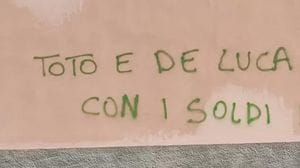 TOTO E DE LUCA
CON I SOLDI